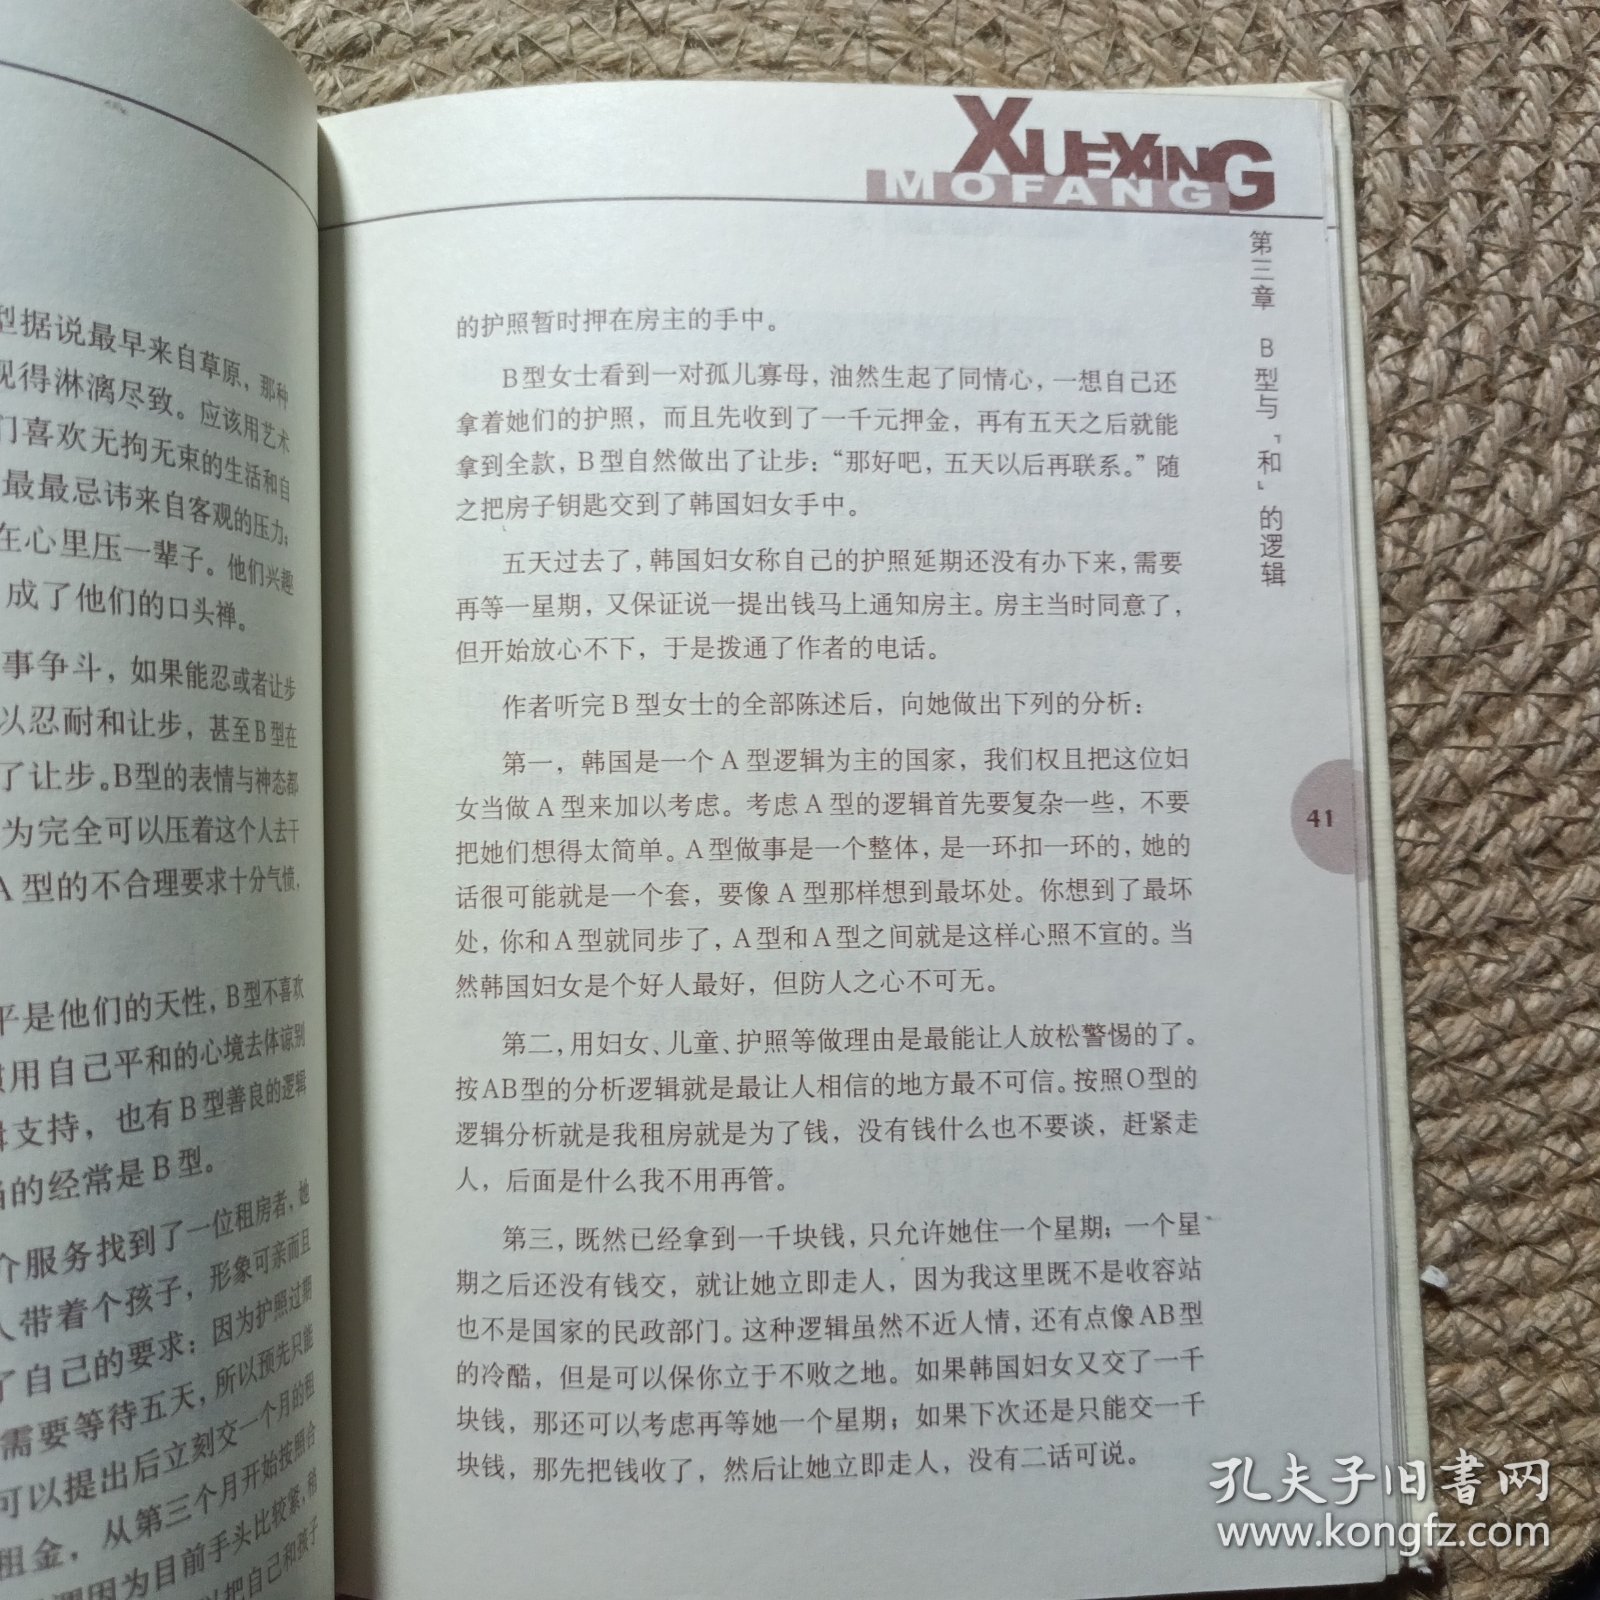 型据说最早来自草原，那种
现得淋漓尽致。应该用艺术
们喜欢无拘无束的生活和自
最最忌讳来自客观的压力；
在心里压一辈子。他们兴趣
成了他们的口头禅。
事争斗，如果能忍或者让步
以忍耐和让步，甚至B型在
了让步。B型的表情与神态都
为完全可以压着这个人去干
A型的不合理要求十分气愤，
平是他们的天性，B型不喜欢
用自己平和的心境去体谅别
支持，也有B型善良的逻辑
的经常是B型。
个服务找到了一位租房者，她
人带着个孩子，形象可亲而且
了自己的要求：因为护照过期
需要等待五天，所以预先只能
可以提出后立刻交一个月的租
租金，从第三个月开始按照合
因为目前手头比较紧，稍
把自己和孩子
XUEXING
MOFANG
第三章 B型与「和」的逻辑
的护照暂时押在房主的手中。
B型女士看到一对孤儿寡母，油然生起了同情心，一想自己还
拿着她们的护照，而且先收到了一千元押金，再有五天之后就能
拿到全款，B型自然做出了让步：“那好吧，五天以后再联系。”随
之把房子钥匙交到了韩国妇女手中。
五天过去了，韩国妇女称自己的护照延期还没有办下来，需要
再等一星期，又保证说一提出钱马上通知房主。房主当时同意了，
但开始放心不下，于是拨通了作者的电话。
作者听完B型女士的全部陈述后，向她做出下列的分析：
第一，韩国是一个A型逻辑为主的国家，我们权且把这位妇
女当做A型来加以考虑。考虑A型的逻辑首先要复杂一些，不要
把她们想得太简单。A型做事是一个整体，是一环扣一环的，她的
话很可能就是一个套，要像A型那样想到最坏处。你想到了最坏
处，你和A型就同步了，A型和A型之间就是这样心照不宣的。当
然韩国妇女是个好人最好，但防人之心不可无。
第二，用妇女、儿童、护照等做理由是最能让人放松警惕的了。
按AB型的分析逻辑就是最让人相信的地方最不可信。按照O型的
逻辑分析就是我租房就是为了钱，没有钱什么也不要谈，赶紧走
人，后面是什么我不用再管。
第三，既然已经拿到一千块钱，只允许她住一个星期；一个星
期之后还没有钱交，就让她立即走人，因为我这里既不是收容站
也不是国家的民政部门。这种逻辑虽然不近人情，还有点像AB型
的冷酷，但是可以保你立于不败之地。如果韩国妇女又交了一千
块钱，那还可以考虑再等她一个星期；如果下次还是只能交一千
块钱，那先把钱收了，然后让她立即走人，没有二话可说。
41
孔夫子旧书网
www.kongfz.com